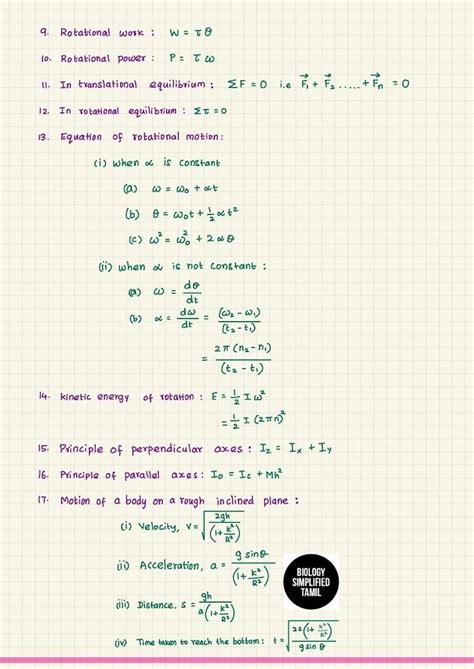 9. Rotational work : W = τθ
10. Rotational power : P = τω
11. In translational equilibrium : ΣF = 0 i.e F⃗₁ + F⃗₂ ..... + F⃗ₙ = 0
12. In rotational equilibrium : Στ = 0
13. Equation of rotational motion :
(i) when α is constant
(a) ω = ω₀ + αt
(b) θ = ω₀t + 1/2 αt²
(c) ω² = ω₀² + 2αθ
(ii) when α is not constant :
(a) ω = dθ/dt
(b) α = dω/dt = (ω₂ - ω₁)/(t₂ - t₁)
= 2π(n₂ - n₁)/(t₂ - t₁)
14. kinetic energy of rotation : E = 1/2 I ω²
= 1/2 I (2πn)²
15. Principle of perpendicular axes : I_z = I_x + I_y
16. Principle of parallel axes : I₀ = I_c + Mh²
17. Motion of a body on a rough inclined plane :
(i) Velocity, v = √(2gh/(1 + k²/R²))
(ii) Acceleration, a = g sinθ/(1 + k²/R²)
(iii) Distance, s = gh/a(1 + k²/R²)
(iv) Time taken to reach the bottom : t = √(2s(1 + k²/R²)/g sinθ)
BIOLOGY
SIMPLIFIED
TAMIL